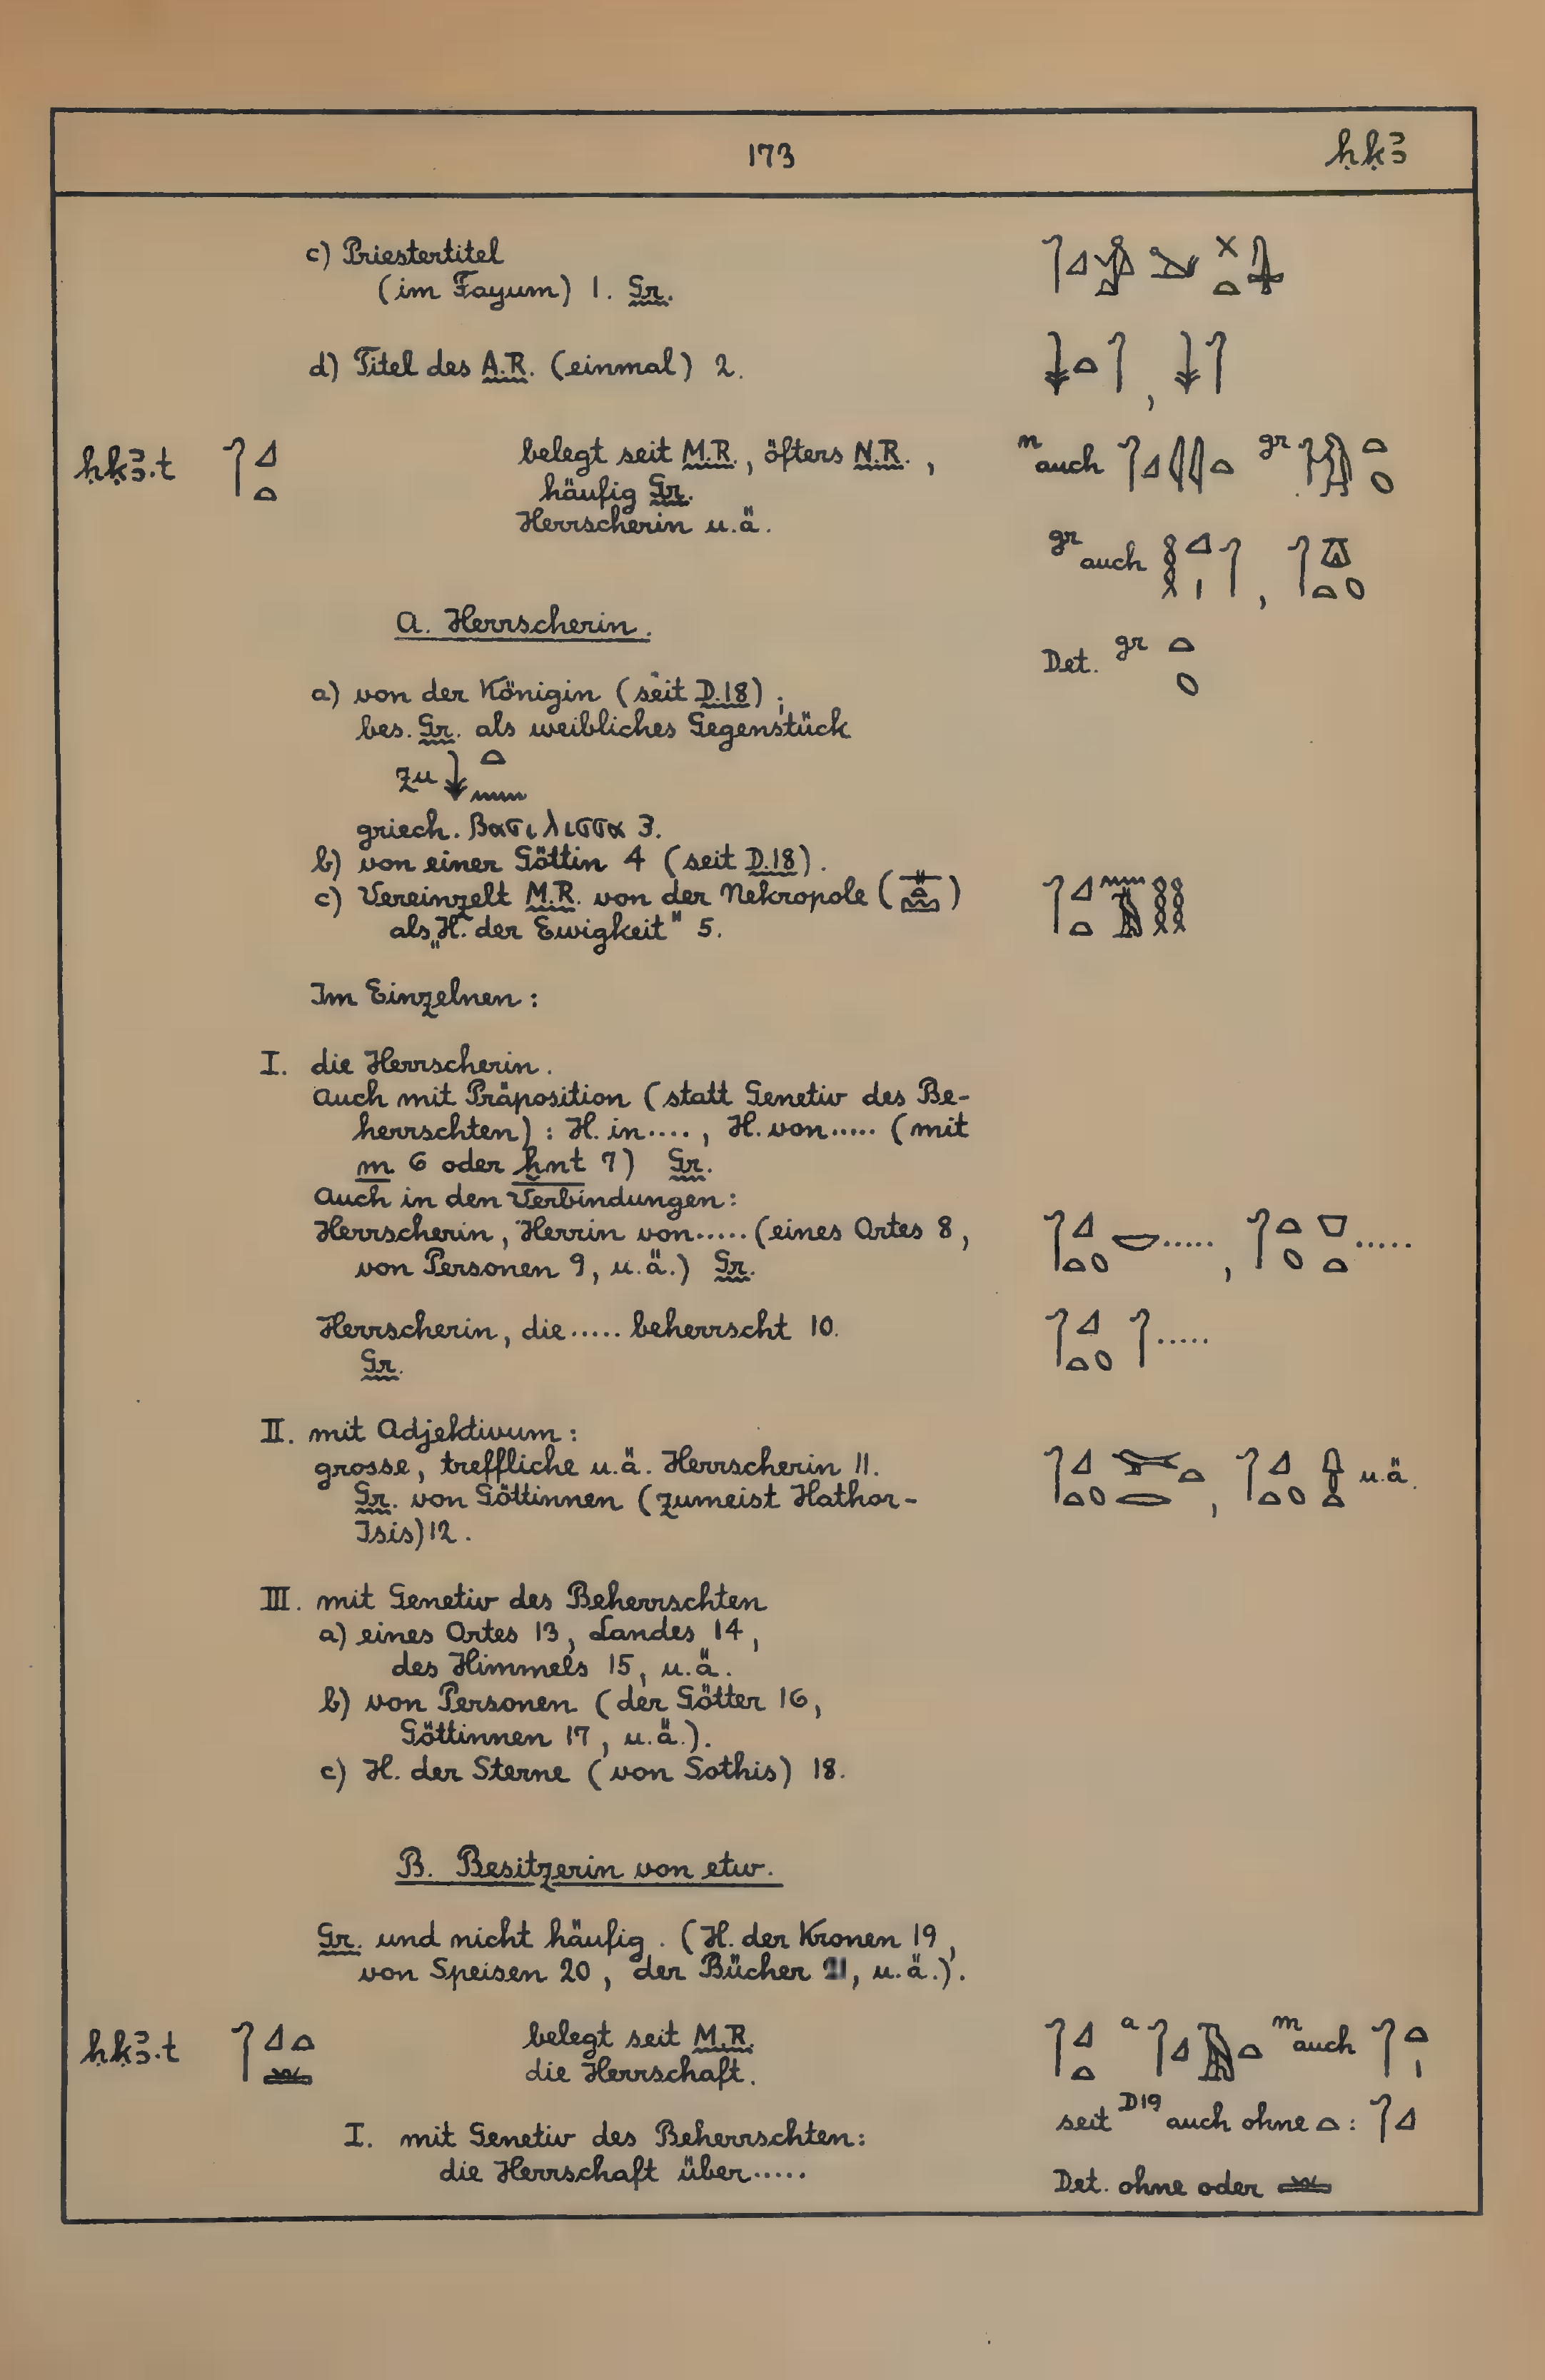 173 ḥḳꜣ
c) Priestertitel
(im Fayum) 1. Gr.
d) Titel des A.R. (einmal) 2.
ḥḳꜣ.t belegt seit M.R., öfters N.R.,
m auch gr
häufig Gr.
Herrscherin u.ä.
gr auch ,
A. Herrscherin.
Det. gr
a) von der Königin (seit D.18);
bes. Gr. als weibliches Gegenstück
zu
griech. βασιλισσα 3.
b) von einer Göttin 4 (seit D.18).
c) Vereinzelt M.R. von der Nekropole ( )
als „H. der Ewigkeit" 5.
Im Einzelnen:
I. die Herrscherin.
Auch mit Präposition (statt Genetiv des Be-
herrschten): H. in...., H. von..... (mit
m 6 oder ḫnt 7) Gr.
Auch in den Verbindungen:
Herrscherin, Herrin von..... (eines Ortes 8, ..... , .....
von Personen 9, u.ä.) Gr.
Herrscherin, die..... beherrscht 10. .....
Gr.
II. mit Adjektivum:
grosse, treffliche u.ä. Herrscherin 11. , u.ä.
Gr. von Göttinnen (zumeist Hathor-
Isis) 12.
III. mit Genetiv des Beherrschten
a) eines Ortes 13, Landes 14,
des Himmels 15, u.ä.
b) von Personen (der Götter 16,
Göttinnen 17, u.ä.).
c) H. der Sterne (von Sothis) 18.
B. Besitzerin von etw.
Gr. und nicht häufig. (H. der Kronen 19,
von Speisen 20, der Bücher 21, u.ä.).
ḥḳꜣ.t belegt seit M.R. a m auch
die Herrschaft.
seit D19 auch ohne :
I. mit Genetiv des Beherrschten:
die Herrschaft über.....
Det. ohne oder